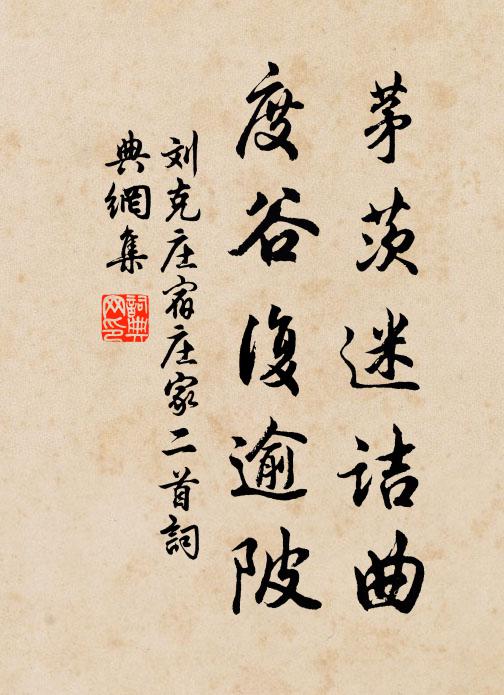 茅茨迷诘曲
度谷復逾陂
刘克庄宿庄家二首詞
典網集
詞典
网印